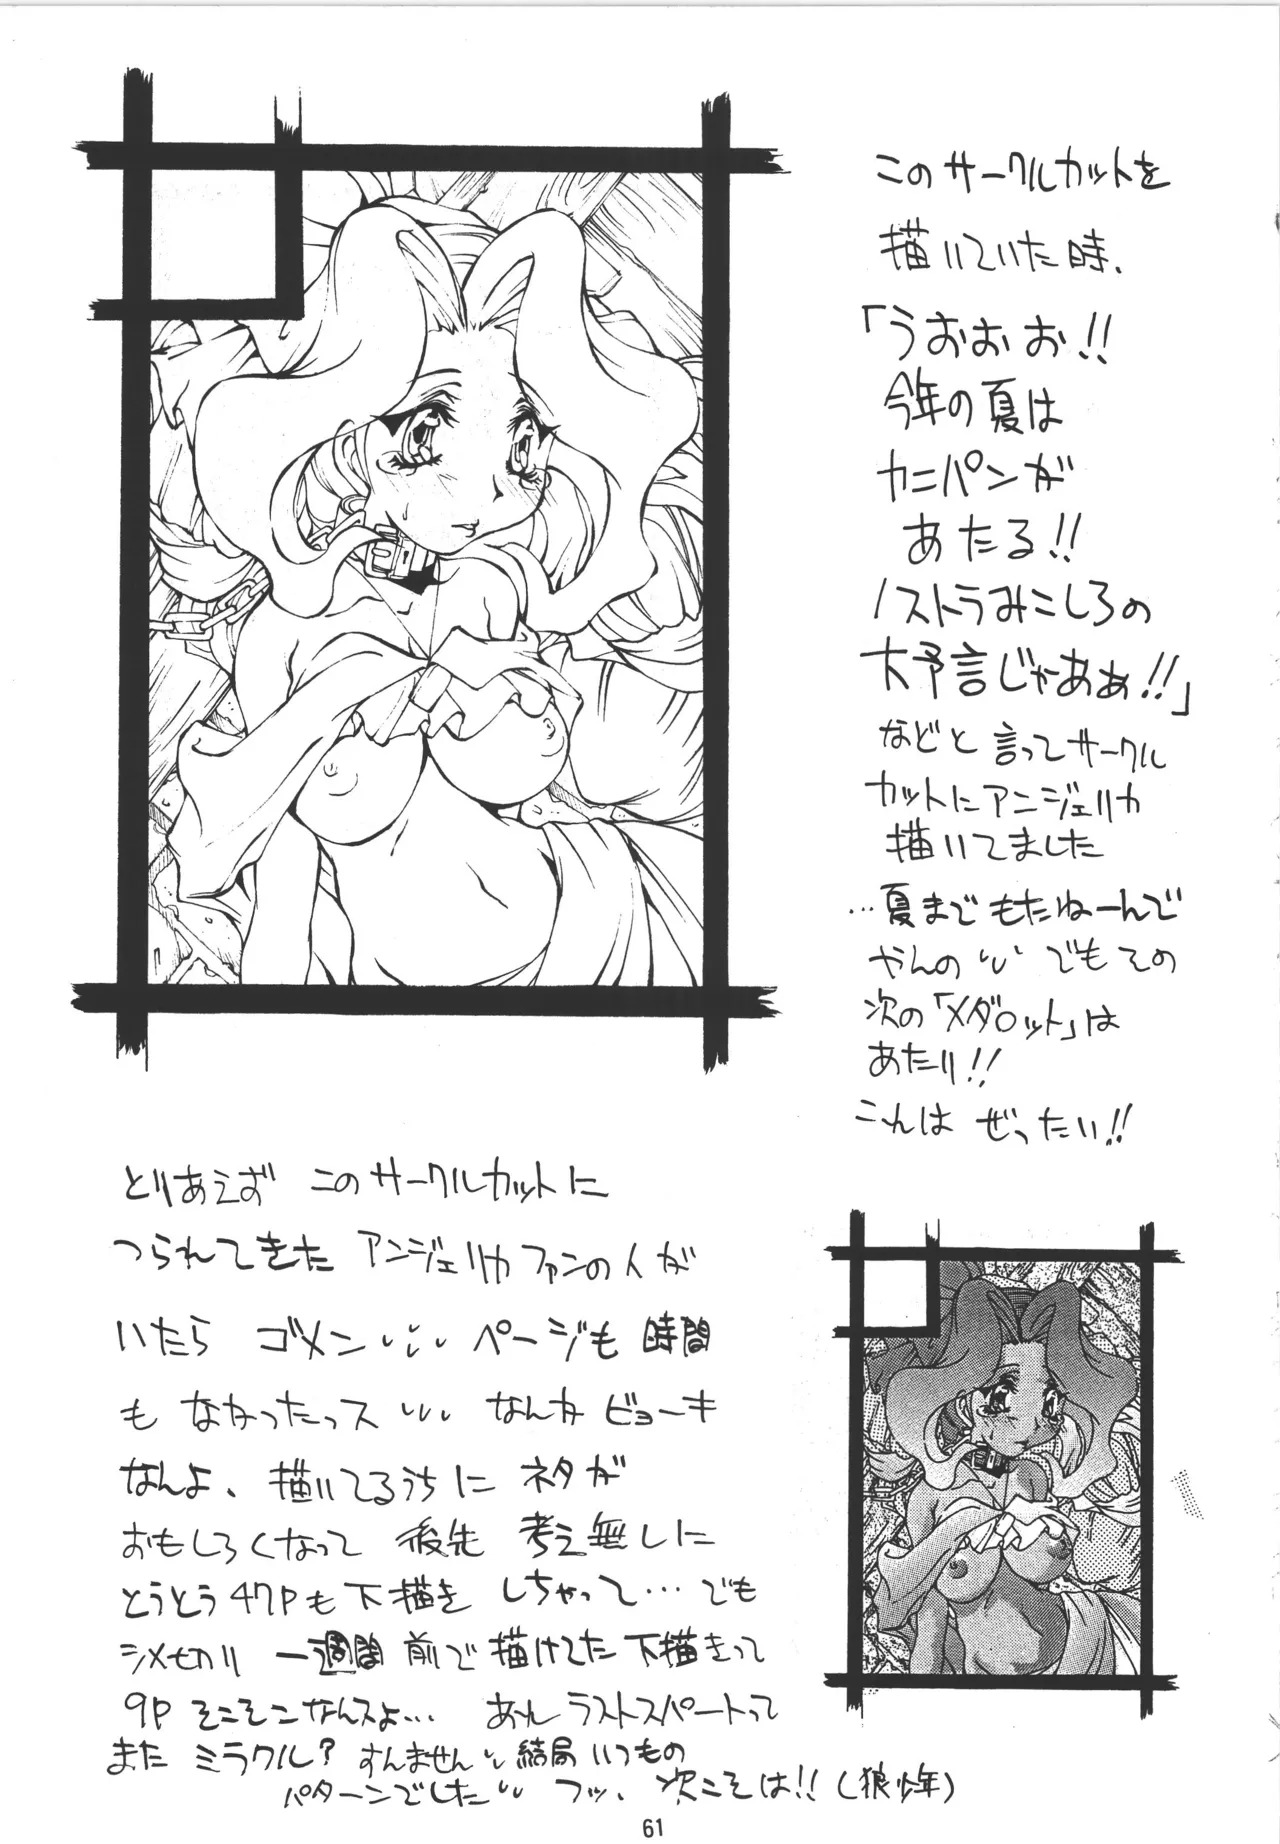 このサークルカットを
描いていた時、
「うおおお!!
今年の夏は
カニパンが
あたる!!
ノストラみこしろの
大予言じゃあぁ!!」
などと言ってサークル
カットにアンジェリカ
描いてました
…夏までもたねーんで
やんの でもその
次の「メダロット」は
あたり!!
こんは ぜったい!!
とりあえず このサークルカットに
つられてきた アンジェリカファンの人が
いたら ゴメン ページも時間
も なかったっス なんかビョーキ
なんよ、描いてるうちに ネタが
おもしろくなって 後先 考え無しに
とうとう47Pも下描き しちゃって…でも
シメセカリ 一週間前で描けてた下描きって
9P そこそこなんスよ… あんラストスパートって
また ミラクル? すんません 結局いつもの
パターンでした フッ、次こそは!!(狼少年)
61